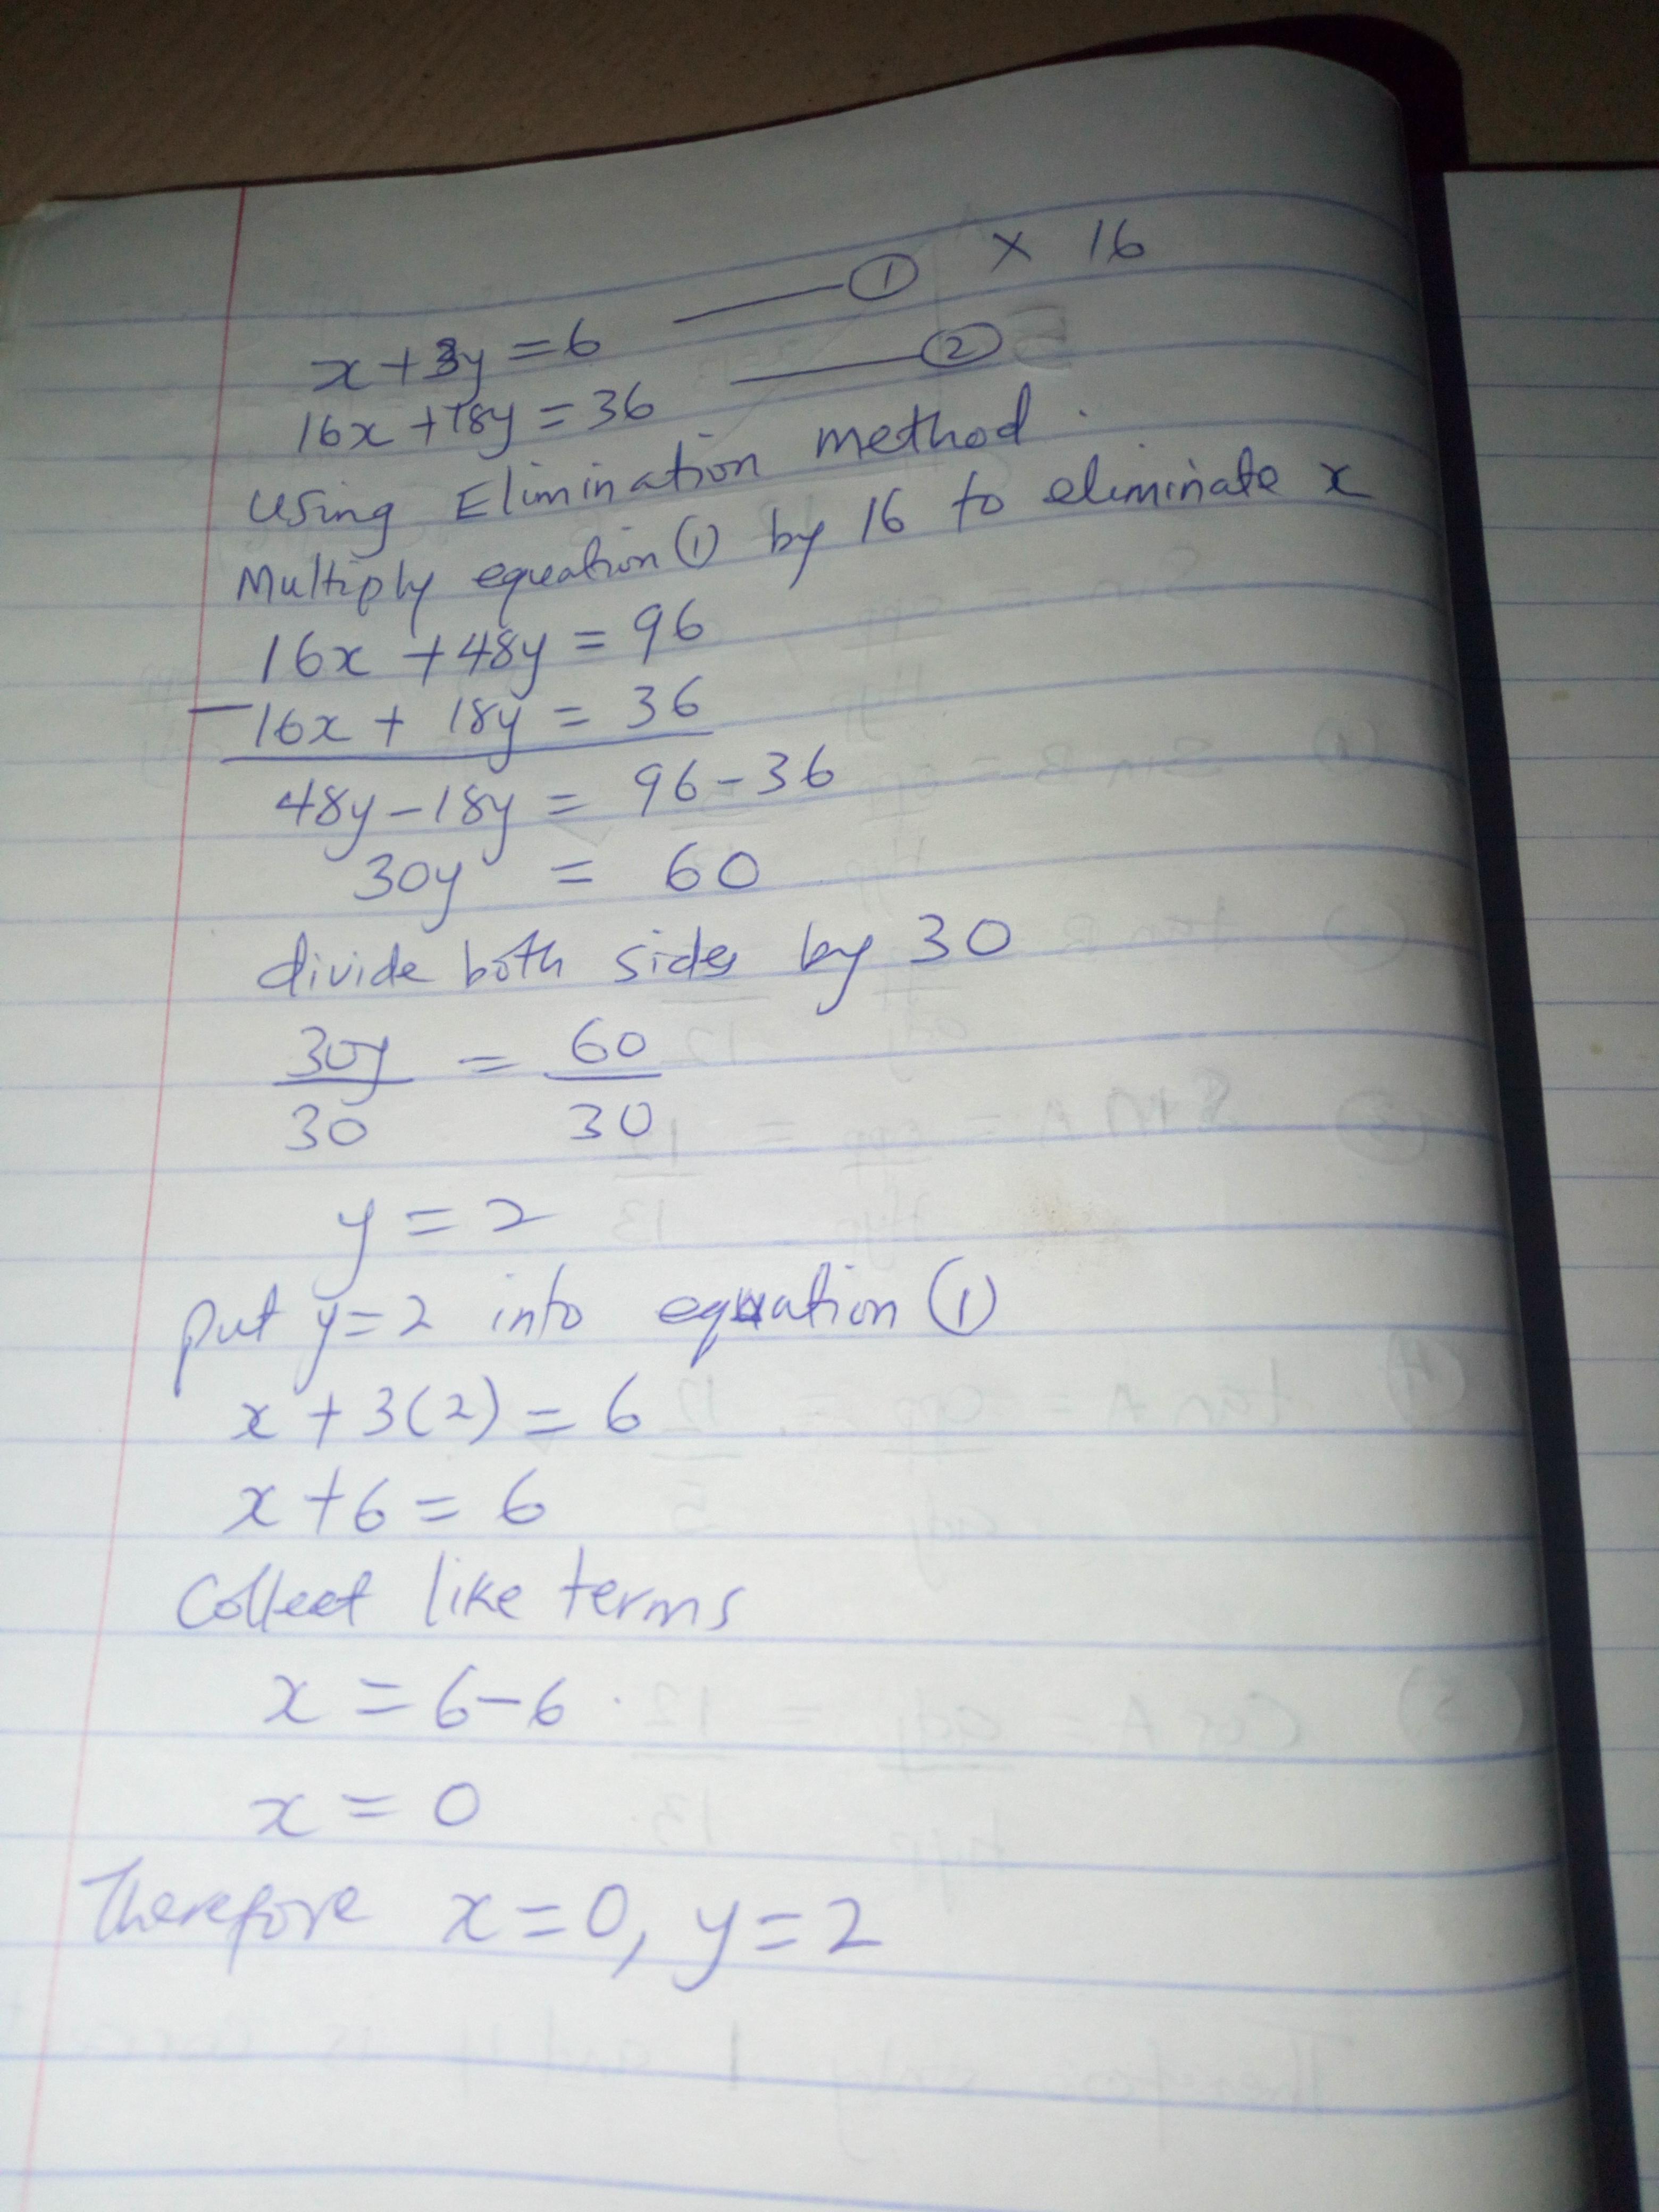 x + 3y = 6 —— ① × 16
16x + 18y = 36 —— ②
Using Elimination method.
Multiply equation ① by 16 to eliminate x
16x + 48y = 96
- 16x + 18y = 36
48y - 18y = 96 - 36
30y = 60
divide both sides by 30
30y/30 = 60/30
y = 2
put y = 2 into equation ①
x + 3(2) = 6
x + 6 = 6
Collect like terms
x = 6 - 6.
x = 0
Therefore x = 0, y = 2